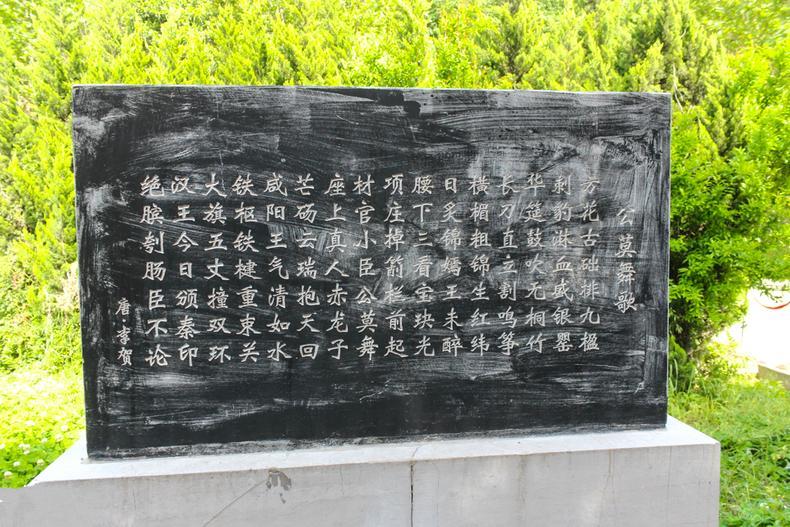 公莫舞歌
方花古础排九楹
刺豹淋血盛银罂
华筵鼓吹无桐竹
长刀直立割鸣筝
横楣粗锦生红纬
日炙锦嫣王未醉
腰下三看宝玦光
项庄掉箭栏前起
材官小臣公莫舞
座上真人赤龙子
芒砀云瑞抱天回
咸阳王气清如水
铁枢铁楗重束关
大旗五丈撞双环
汉王今日颁秦印
绝膑刳肠臣不论
唐李贺